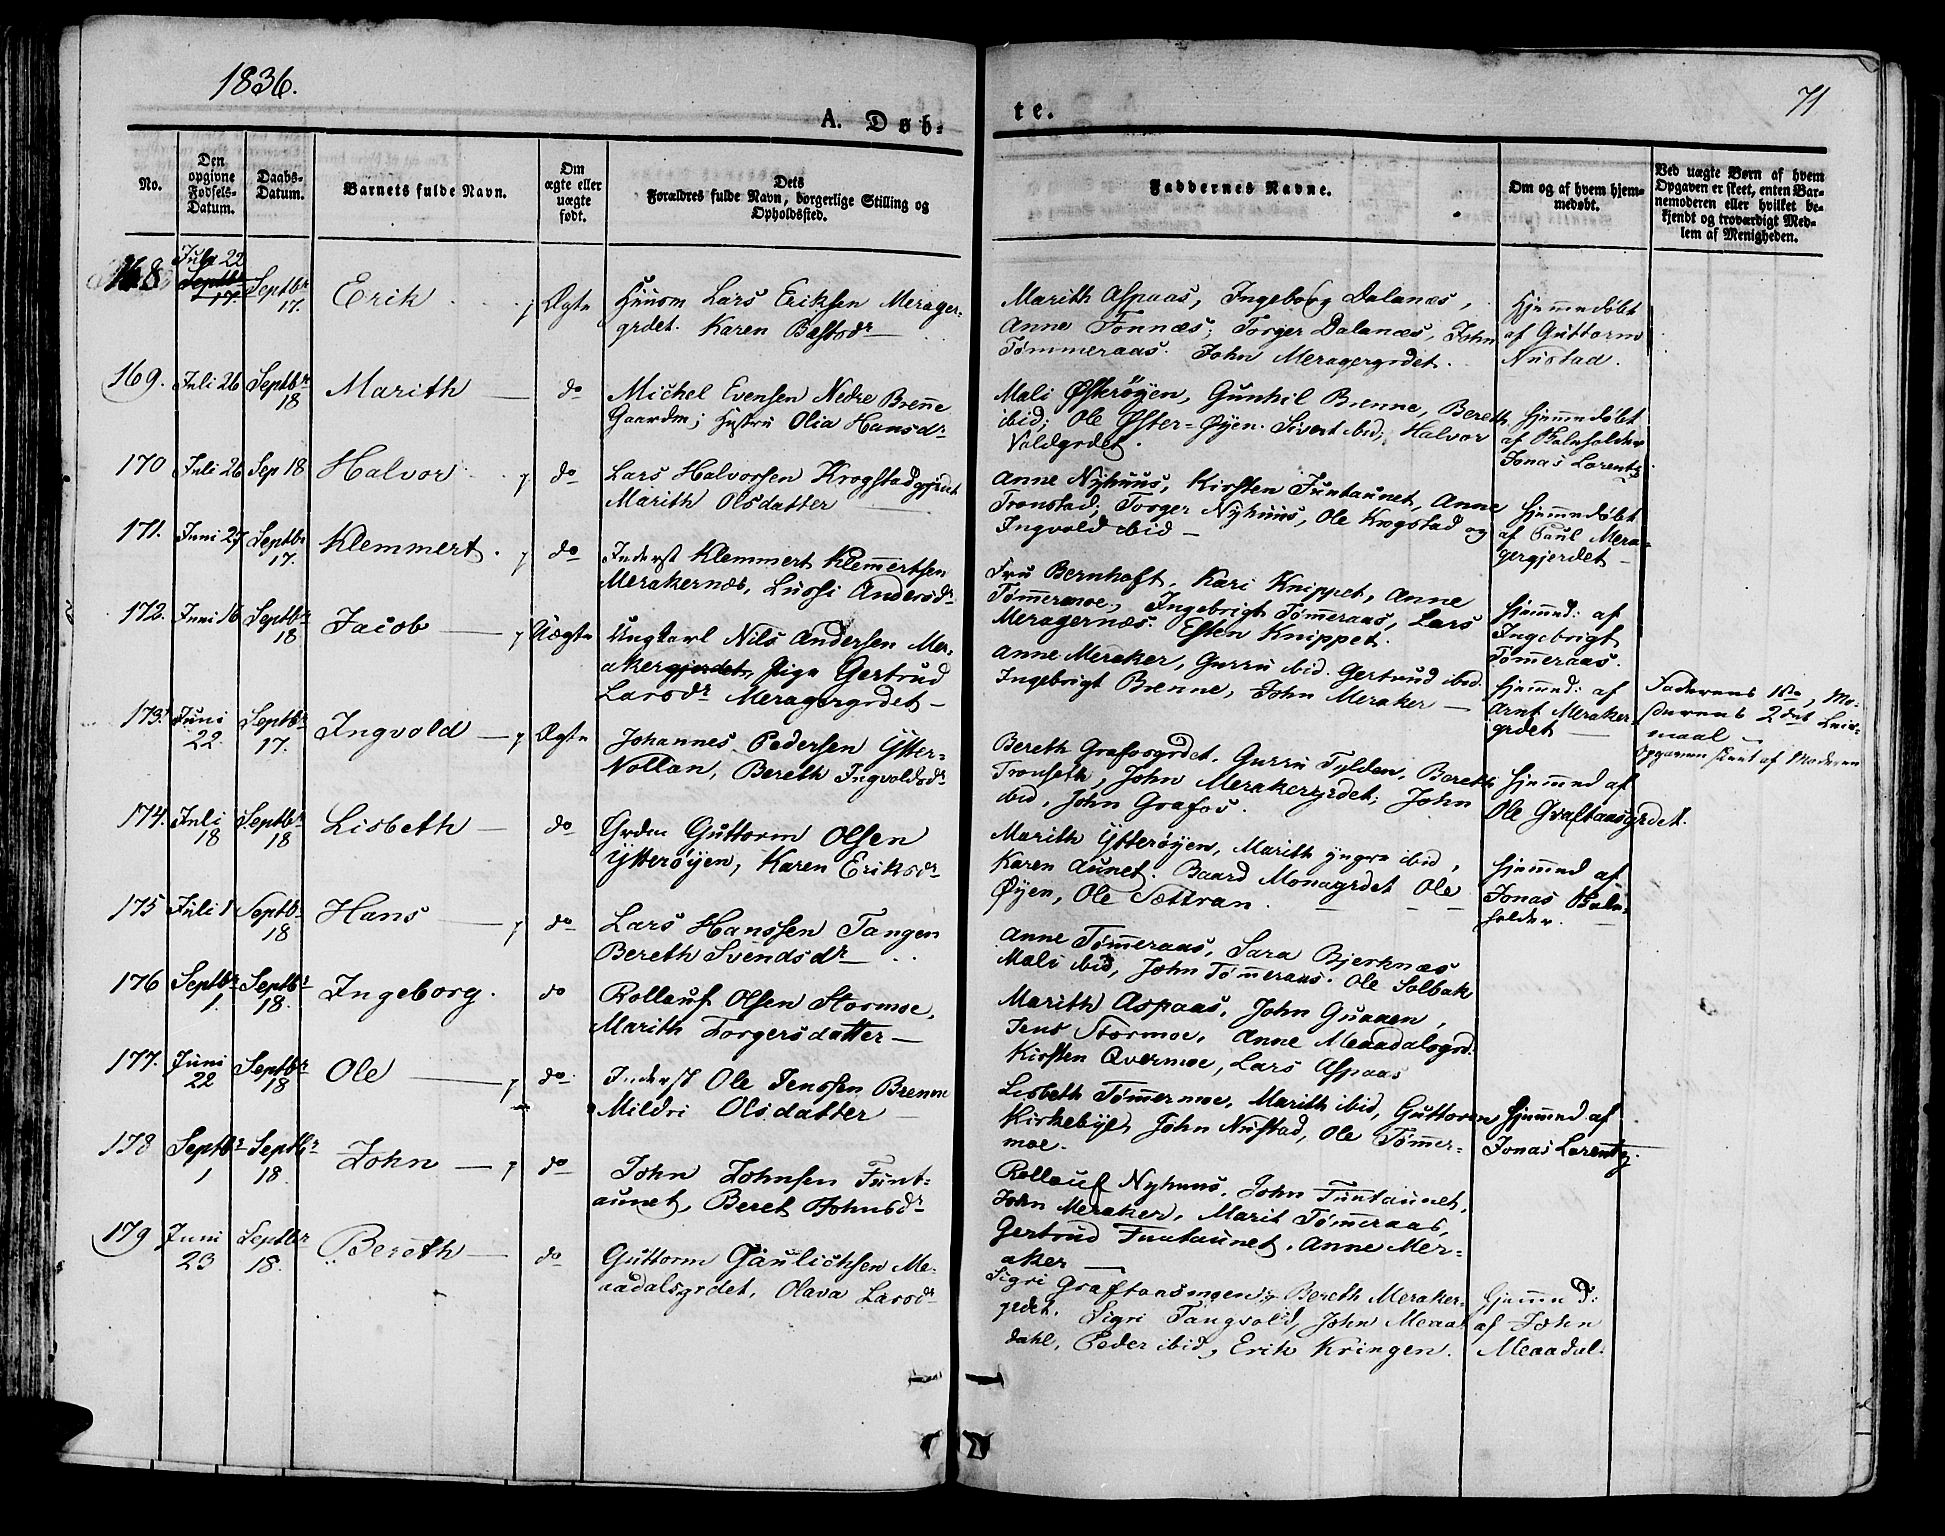 1836.
71
A. Døb-
te.
No.
Den
opgivne
Fødsels-
Datum.
Daabs-
Datum.
Barnets fulde Navn.
Om
ægte eller
uægte
født.
Dets
Forældres fulde Navn, borgerlige Stilling og
Opholdssted.
Faddernes Navne.
Om og af hvem hjem-
medøbt.
Ved uægte Børn af hvem
Opgaven er skeet, enten Bar-
nemoderen eller hvilket be-
kjendt og troværdigt Med-
lem af Menigheden.
168
Juli 22
Septbr
17.
Septbr
17.
Erik
Ægte
Huusm Lars Eriksen Merager-
grdet. Karen
Marith Aspaas, Ingeborg Dalanæs,
Anne Fonnæs; Torger Dalanæs, John
Tømmeraas. John Meragergrdet.
Hjemmedøbt
af Guttorm
Nustad.
169.
Juli 26
Septbr
18
Marith
do
Michel Evensen Nedre Brenne
Gaardm; Hustru Olia Hansdr
Mali Østerøyen, Gunhil Brenne, Bereth
ibid; Ole Øster-Øyen. Sivert ibid, Halvor
Voldgrdet.
Hjemmedøbt
af
Jonas Lorentz
170
Juli 26
Sep 18
Halvor
do
Lars Halvorsen Krogstadgjrdet
Marith Olsdatter
Anne Nyhuus, Kirsten Funtaunet, Anne
Tronstad; Torger Nyhuus, Ole Krogstad og
Ingvold ibid
Hjemmedøbt
af Paul Mera-
gergjerdet
171.
Juni 27
Septbr
17.
Klemmert.
do
Inderst Klemmert Klemmertsen
Merakernæs, Lussi Andersdr
Fru Bernhoft, Kari Knippet, Anne
Tømmermoe, Ingebrigt Tømmeraas, Lars
Meragernæs. Esten Knippet.
Hjemmd: af
Ingebrigt
Tømmeraas.
172.
Juni 16
Septbr
18
Jacob
Uægte
Ungkarl Nils Andersen Mer-
akergjerdet, Pige Gertrud
Larsdr Meragergrdet
Anne Meraker, Gurru ibid. Gertrud ibid.
Ingebrigt Brenne, John Meraker
Hjemmd: af
Arnt Meraker
grdet
Faderens 1ste, Mo-
derens 2det Leier-
maal
Opgaven skeet af Moderen
173.
Juni
22.
Septbr
17.
Ingvold
Ægte
Johannes Pedersen Ytter-
Nollan, Bereth Ingvoldsdr
Bereth Grafosgrdet, Gurru Tylden, Bereth
Tronseth, John Merakergrdet; John
ibid, John Grafos.
Hjemmd af
Ole Graftaasgrdet.
174.
Juli
18
Septbr
18
Lisbeth
do
Grdm Guttorm Olsen
Ytterøyen, Karen Eriksdr
Marith Ytterøyen, Marith yngre ibid,
Karen Aunet. Baard Monagrdet Ole
Øyen, Ole Sættran.
Hjemmd af
Jonas
holder.
175
Juli 1
Septbr
18
Hans
do
Lars Hanssen Tangen
Bereth Svendsdr
Anne Tømmeraas, Sara Bjerknæs
Mali ibid, John Tømmeraas. Ole Solbak
176
Septbr
1.
Septbr
18.
Ingeborg.
do
Rollauf Olsen Stormoe,
Marith Torgersdatter
Marith Aspaas, John Gunnen,
Jens Stormoe, Anne Meaadalsgrd.
Kirsten Qvermoe, Lars Aspaas
177.
Juni
22
Septbr
18
Ole
do
Inderst Ole Jenssen Brenne
Mildri Olsdatter
Lisbeth Tømmermoe, Marith ibid, Guttorm
Kirkebye, John Nustad, Ole Tømmer-
moe.
Hjemmd af
Jonas Lorentz.
178
Septbr
1
Septbr
18.
John
do
John Johnsen Funt-
aunet, Beret Johnsdr
Rollauf Nyhuus, John Funtaunet,
John Meraker, Marit Tømmeraas,
Gertrud Funtaunet, Anne Mer-
aker
179
Juni
23
Septbr
18.
Bereth
do
Guttorm Gaulichsen Me-
aadalsgrdet, Olava Larsdr
Sigri Graftaasingen, Bereth Meraker-
grdet. Sigri Tangvold, John Meaa-
dahl, Peder ibid, Erik Kringen.
Hjemmd:
af John
Meaadal.